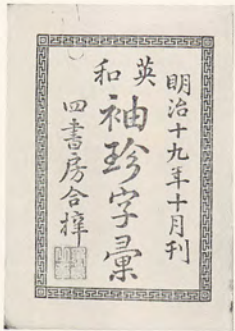 明治十九年十月刊
英和
袖珍字彙
四書房合梓